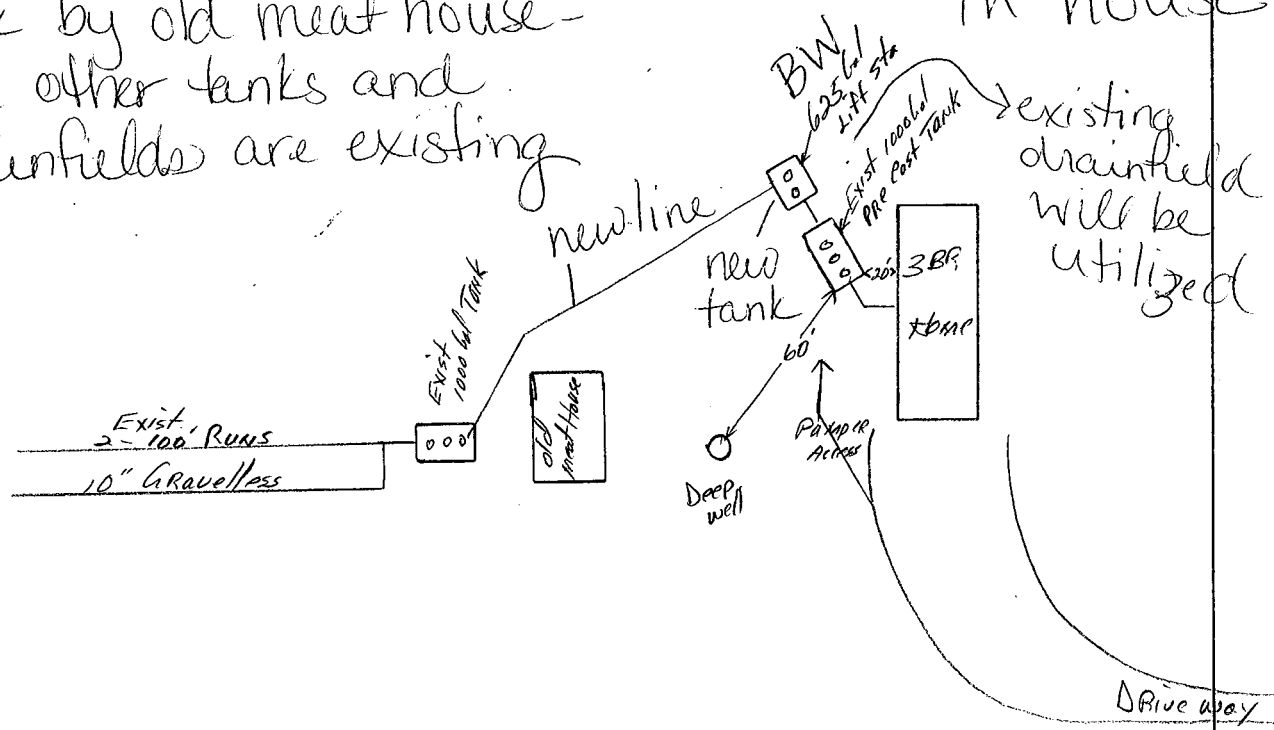 by old meat house-
other tanks and
are existing
in house
BW
625 Gal
Lift Sta
Exist 1000 Gal
PRE Cast TANK
existing
drainfield
will be
utilized
new line
new
tank
20'
3 BR
Home
60'
Exist
1000 Gal TANK
old
meat House
Exist
2-100' RUNS
10" GRavelless
Deep
well
Pumper
Access
DRive way